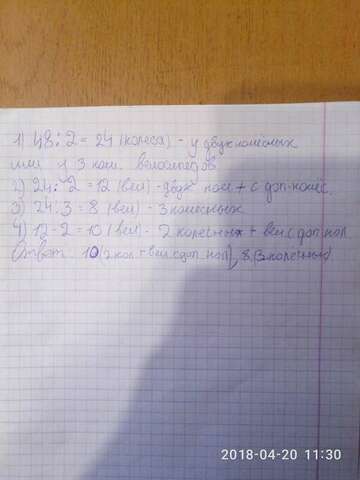 1) 48:2=24 (колеса) - у двухколёсных
или у 3 кол. велосипедов
2) 24:2=12 (вел) - двух кол + с доп-колёс.
3) 24:3=8 (вел) - 3 колесных
4) 12-2=10 (вел) - 2 колесных + вел с доп кол
Ответ: 10 (2 кол + вел с доп кол), 8 (3 колесный)
2018-04-20 11:30